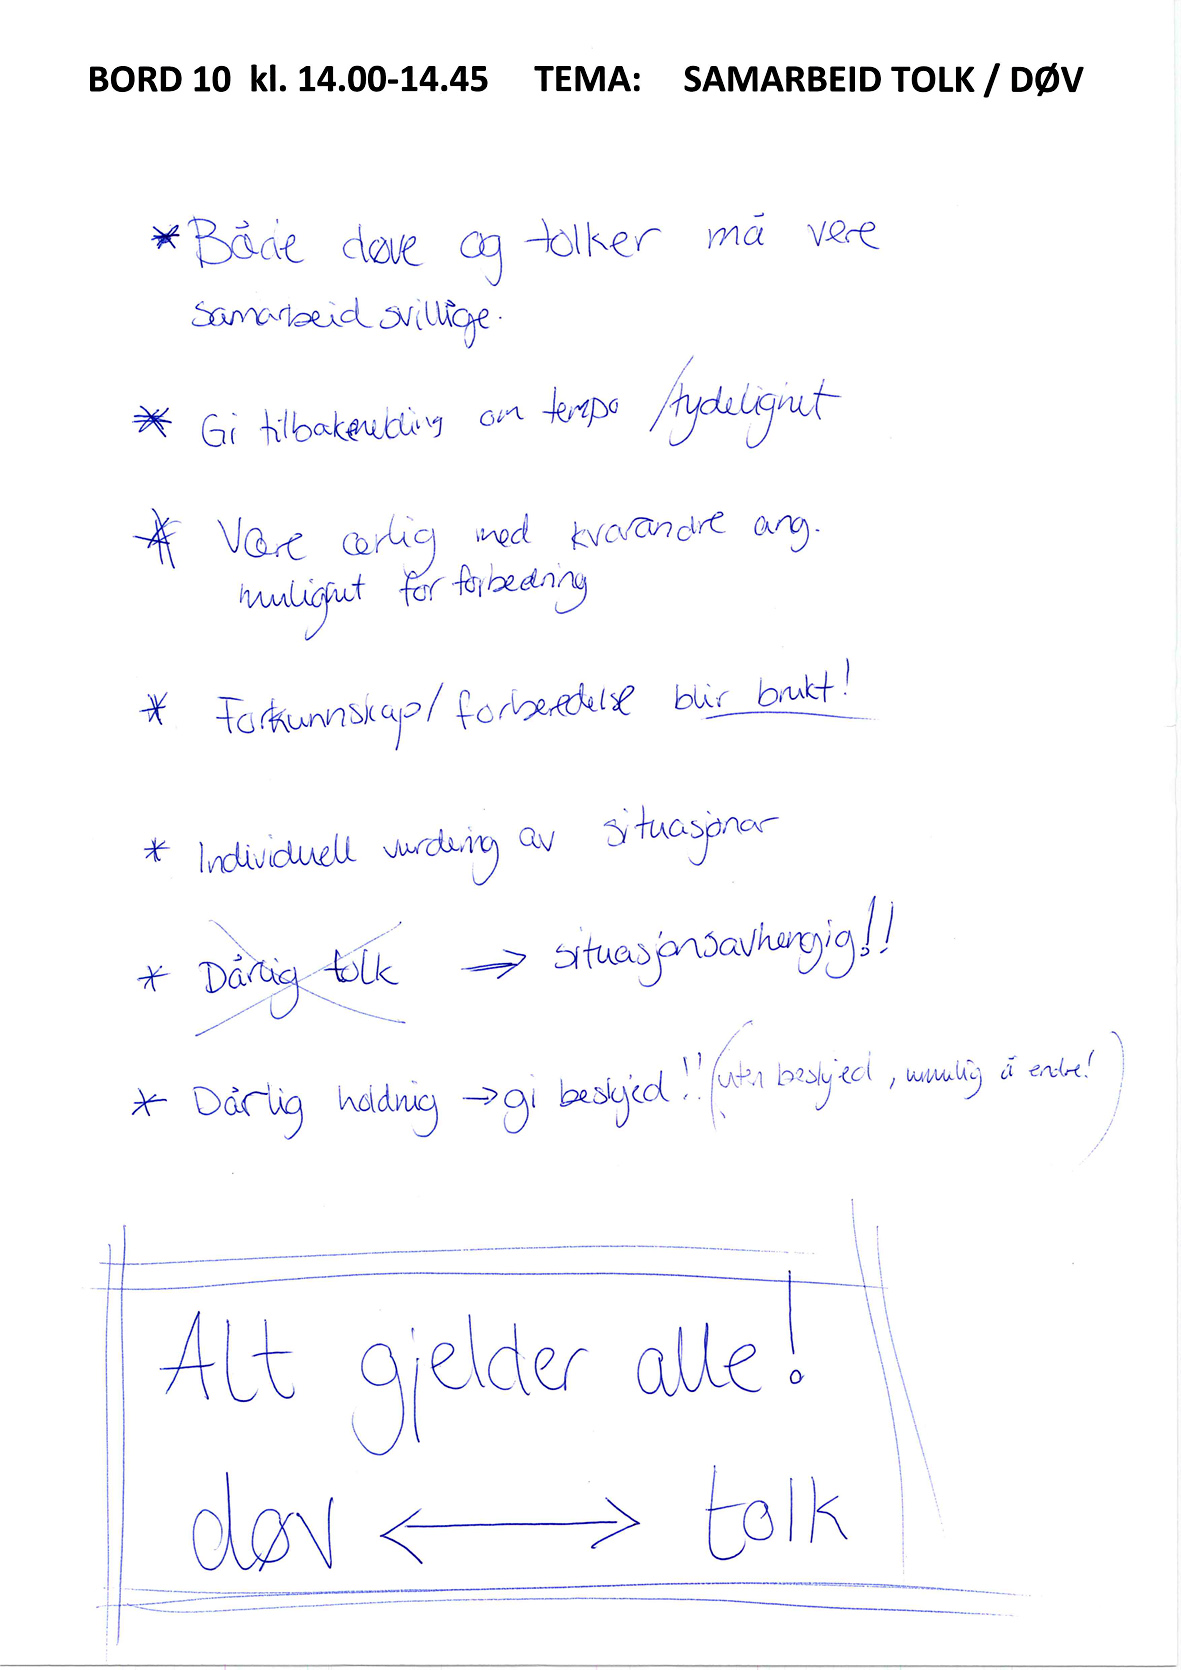 BORD 10 kl. 14.00-14.45 TEMA: SAMARBEID TOLK / DØV
* Både døve og tolker må vere
samarbeidsvillige.
* Gi tilbakemelding om tempo /tydelighet
* Være ærlig med kvarandre ang.
mulighet for forbedring
* Forkunnskap/forberedelse blir brukt!
* Individuell vurdering av situasjonar
* Dårlig tolk → situasjonsavhengig!!
* Dårlig holdnig → gi beskjed!! (uten beskjed, umulig å endre!)
Alt gjelder alle!
døv ↔ tolk